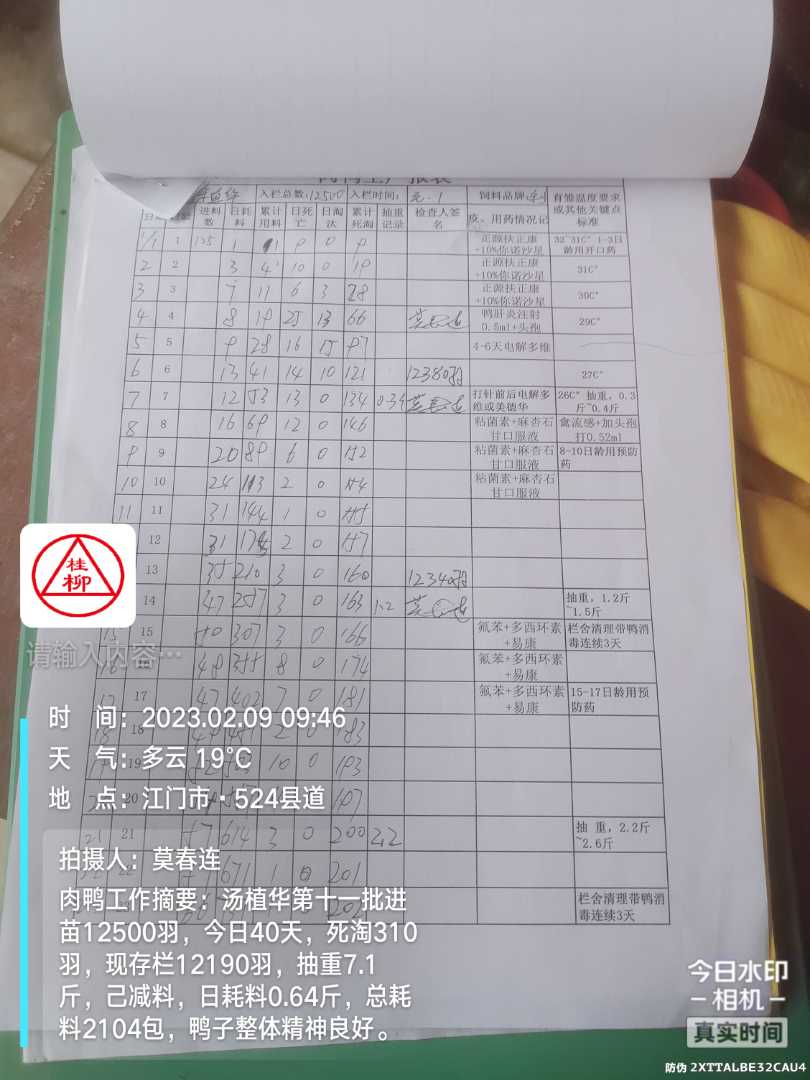 入栏总数:12500 入栏时间: 元.1 饲料品牌
进料数 日耗料 累计用料 日死亡 日淘汰 累计死淘 抽重记录 检查人签名 疫、用药情况记 育雏温度要求或其他关键点标准
1/1 1 125 1 1 9 0 9 正源扶正康+10%你诺沙星 32~31C° 1-3日龄用开口药
2 2 3 4 10 0 19 正源扶正康+10%你诺沙星 31C°
3 3 7 11 6 3 28 正源扶正康+10%你诺沙星 30C°
4 4 8 19 25 13 66 鸭肝炎注射0.5ml+头孢 29C°
5 5 9 28 16 15 97 4-6天电解多维
6 6 13 41 14 10 121 12380羽 27C°
7 7 12 53 13 0 134 0.34 打针前后电解多维或美德华 26C° 抽重,0.3斤~0.4斤
8 8 16 69 12 0 146 粘菌素+麻杏石甘口服液 禽流感+加头孢打0.52ml
9 9 20 89 6 0 152 粘菌素+麻杏石甘口服液 8-10日龄用预防药
10 10 24 113 2 0 154 粘菌素+麻杏石甘口服液
11 11 31 144 1 0 155
12 31 175 2 0 157
13 35 210 3 0 160 12340羽
14 47 257 3 0 163 1.2 抽重,1.2斤~1.5斤
15 15 50 307 3 0 166 氟苯+多西环素+易康 栏舍清理带鸭消毒连续3天
16 48 355 8 0 174 氟苯+多西环素+易康
17 17 47 402 7 0 181 氟苯+多西环素+易康 15-17日龄用预防药
18 18 2 0 183
19 10 0 193
20 197
21 21 57 614 3 0 200 2.2 抽 重,2.2斤~2.6斤
671 1 0 201
栏舍清理带鸭消毒连续3天
桂
柳
请输入内容…
时 间:2023.02.09 09:46
天 气:多云 19°C
地 点:江门市·524县道
拍摄人:莫春连
肉鸭工作摘要:汤植华第十一批进
苗12500羽,今日40天,死淘310
羽,现存栏12190羽,抽重7.1
斤,己减料,日耗料0.64斤,总耗
料2104包,鸭子整体精神良好。
今日水印
-相机-
真实时间
防伪 2XTTALBE32CAU4